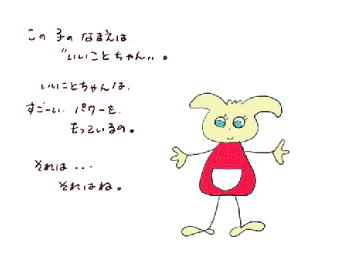 この子のなまえは
"いいことちゃん"。
いいことちゃんは、
すごーい パワーを、
もっているの。
それは・・・
それはね。